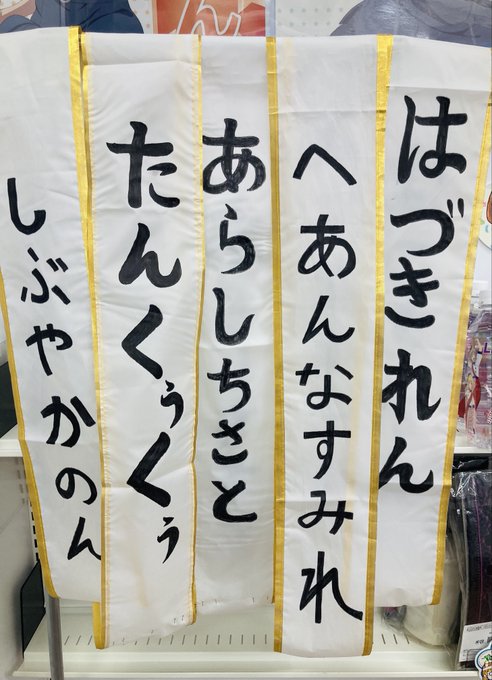 はづきれん
へあんなすみれ
あらしちさと
たんくぅくぅ
しぶやかのん
ん